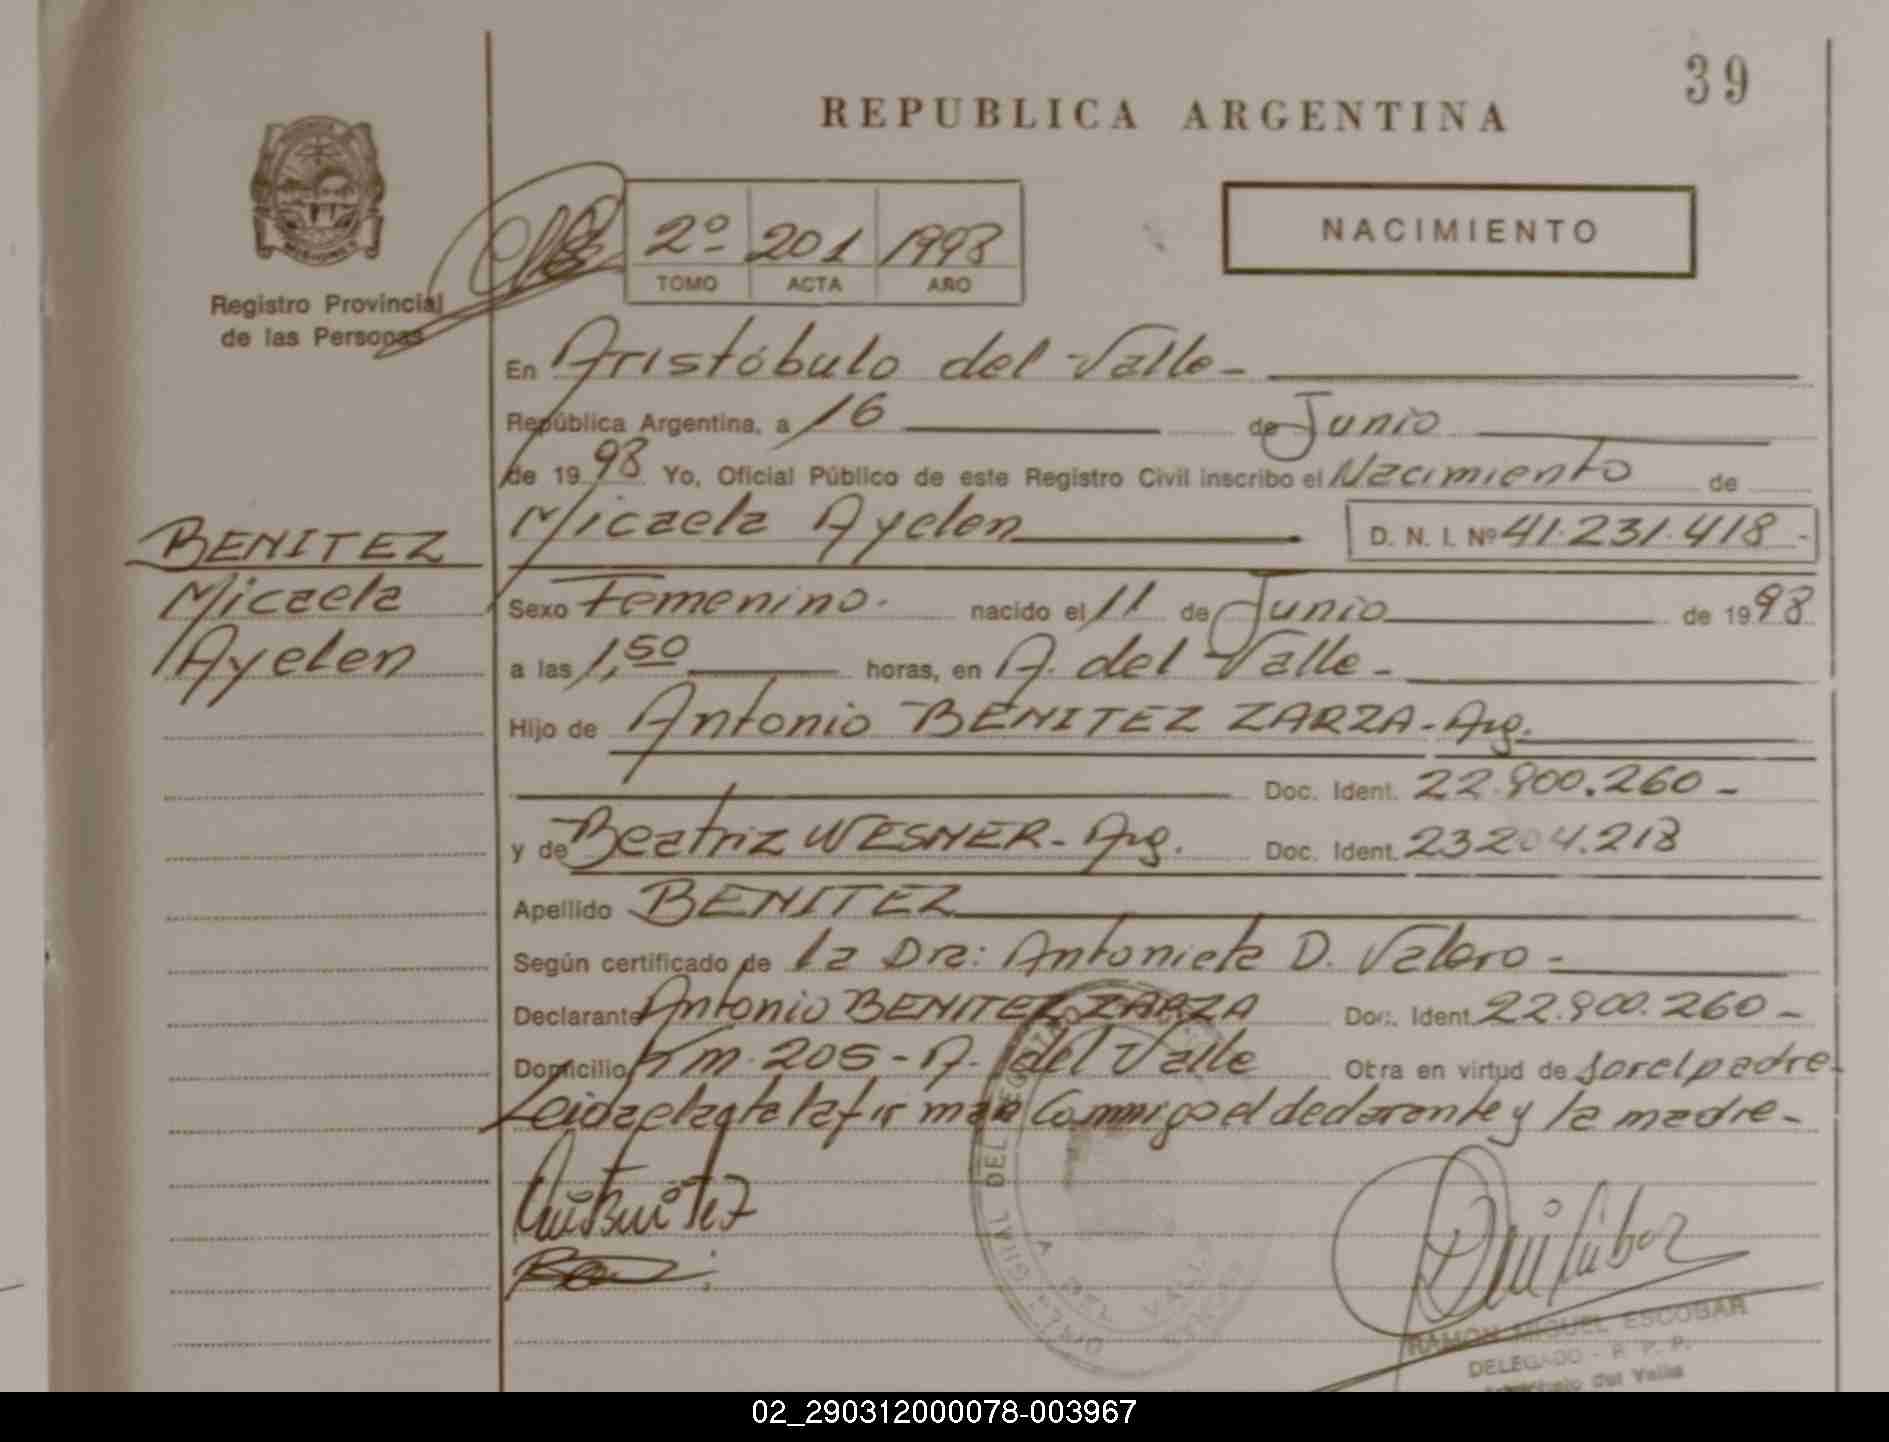 39
REPUBLICA ARGENTINA
NACIMIENTO
2º 201 1998
TOMO ACTA AÑO
Registro Provincial
de las Personas
En Aristóbulo del Valle -
República Argentina, a 16 de Junio
de 1998 Yo, Oficial Público de este Registro Civil inscribo el Nacimiento de
Micaela Ayelen D. N. I. Nº 41.231.418 -
BENITEZ
Micaela
Ayelen
Sexo Femenino. nacido el 11 de Junio de 1998
a las 1,50 horas, en A. del Valle -
Hijo de Antonio BENITEZ ZARZA - Arg.
Doc. Ident. 22.900.260 -
y de Beatriz WESNER - Arg. Doc. Ident. 23204.218
Apellido BENITEZ
Según certificado de la Dra: Antonieta D. Valero -
Declarante Antonio BENITEZ ZARZA Doc. Ident. 22.900.260 -
Domicilio Km. 205 - A. del Valle Otra en virtud de ser el padre -
Leida el acta la firman Conmigo el declarante y la madre -
RAMON MIGUEL ESCOBAR
DELEGADO - R. P. P.
del Valle
02_290312000078-003967